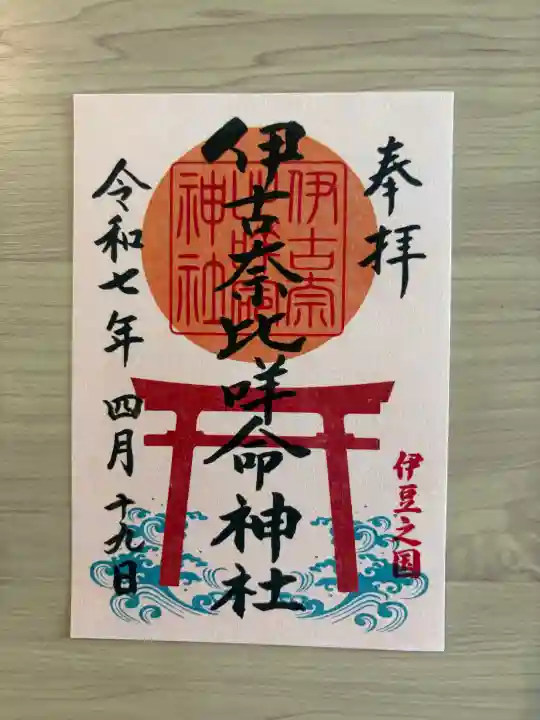 奉拝
伊豆之国
伊古奈比咩命神社
伊古奈
神社
令和七年 四月 十九日